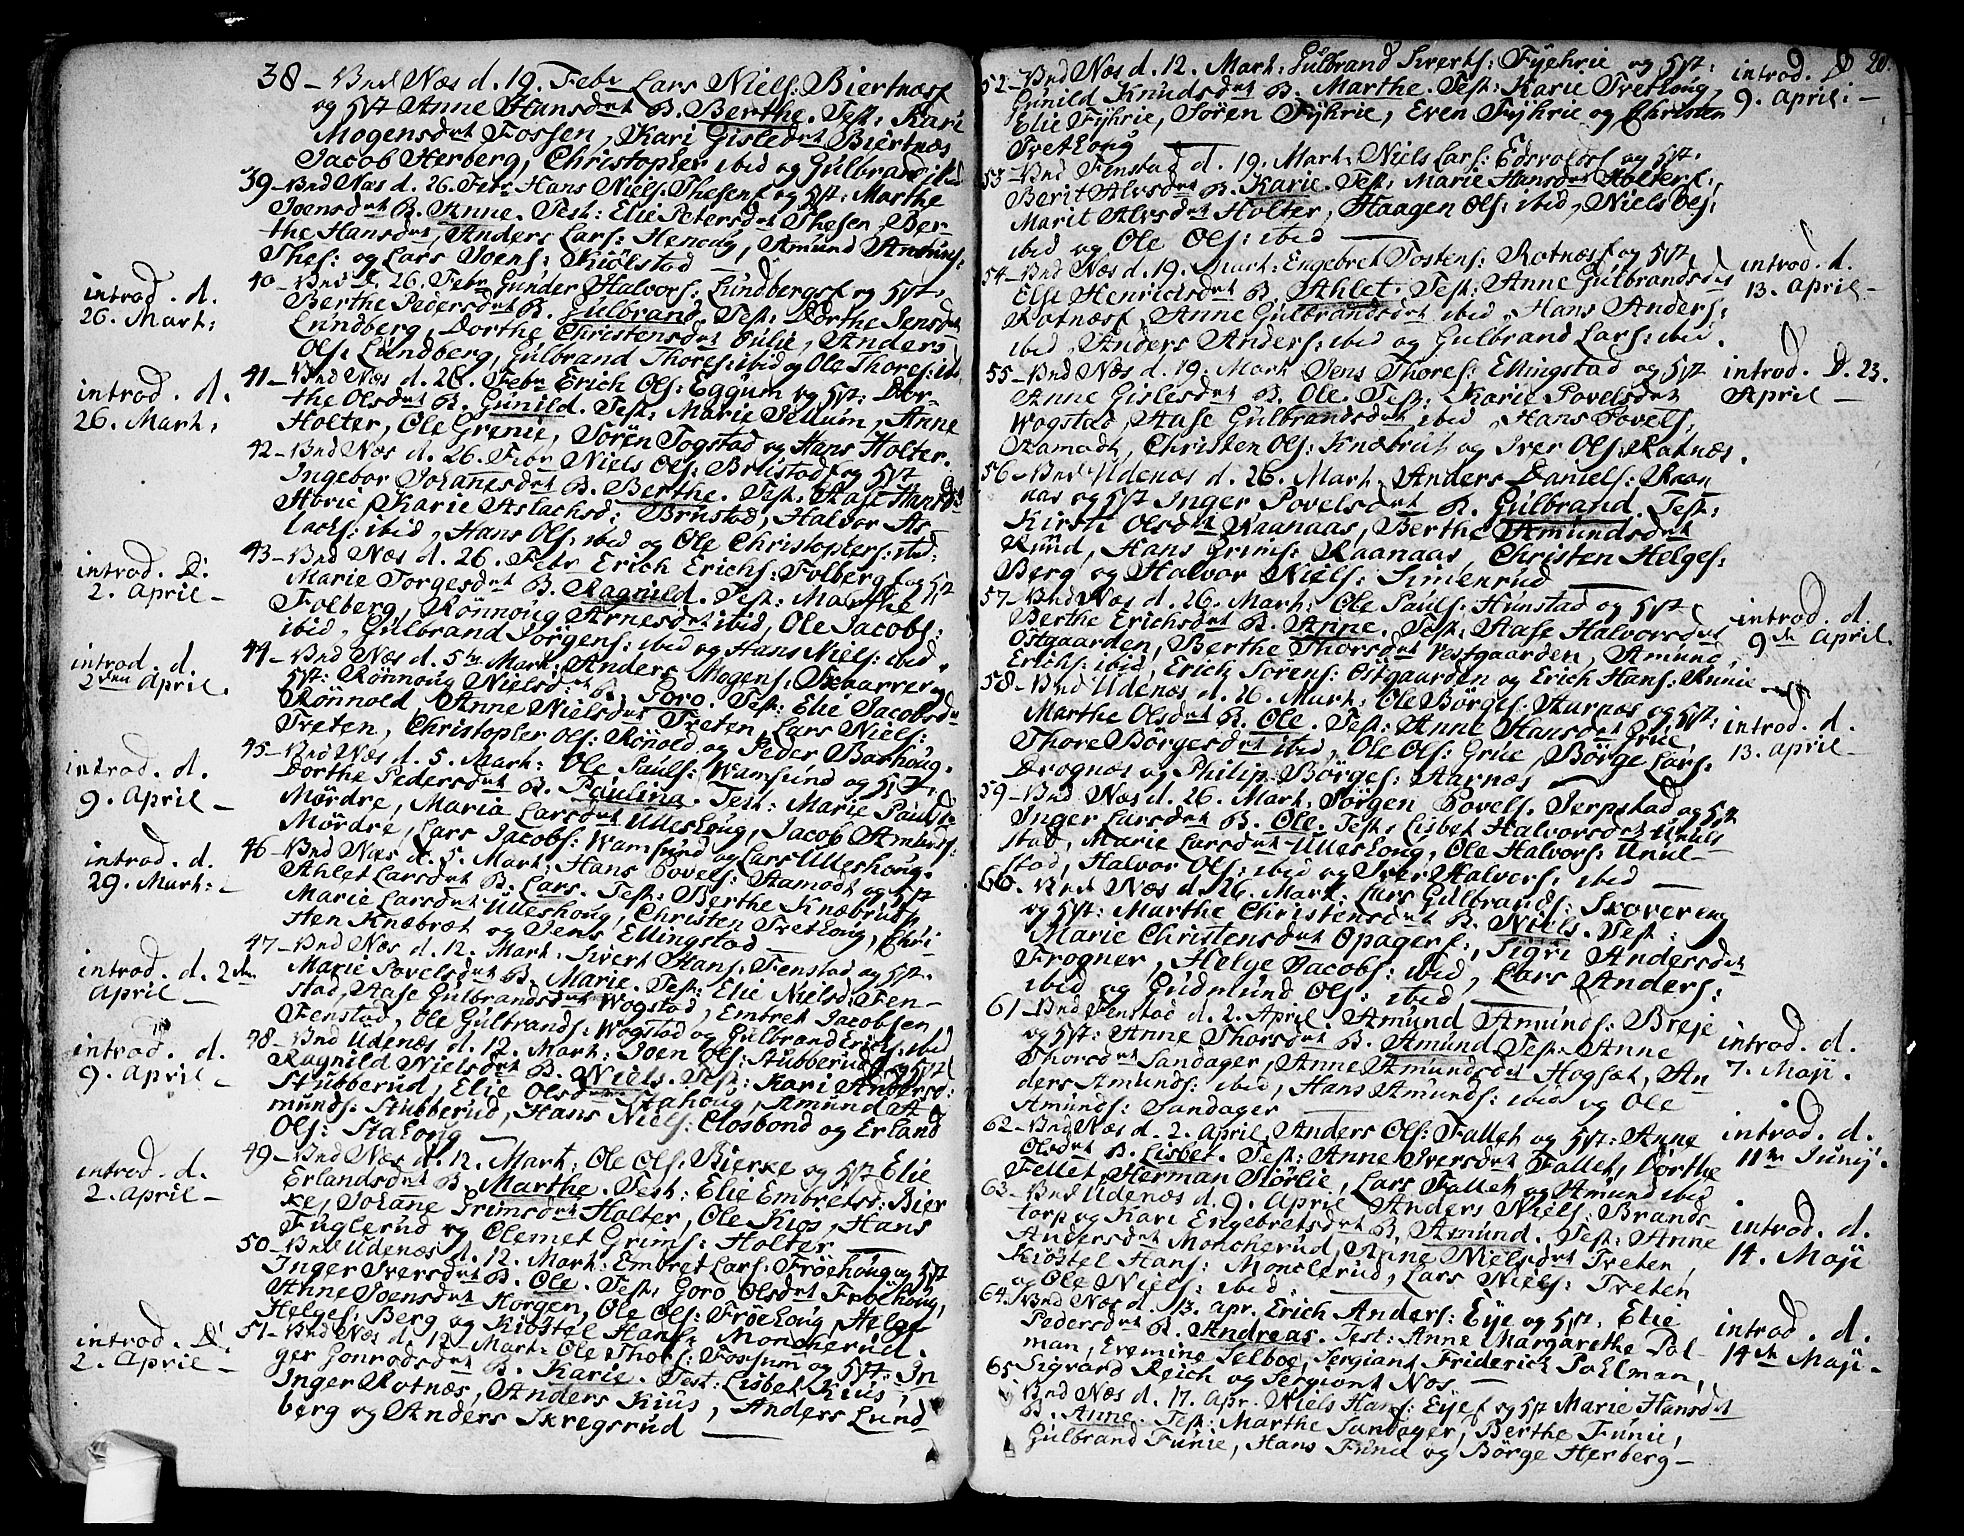 38 – Bnd Næs d. 19. Febr Lars Niels: Biertnæsf
og 5st Anne Hansdtr B. Berthe. Test: Kari
Mogensdtr Fossen, Kari Gislesdtr Biertnæs
Jacob Herberg, Christopher ibid og Gulbrand ibid
39 – Bnd Næs d. 26. Febr Hans Niels: Thesenf og 5st: Marthe
Joensdtr B. Anne. Test: Elie Petersdtr Thesen, Ber-
the Hansdtr, Anders Lars: Henoug, Amund
Thes: og Lars Joens: Kiölstad
introd. d.
26. Mart:
40 – Bnd d. 26. Febr Gunder Halvors: Lundbergsf og 5st,
Berthe Pedersdtr B. Gulbrand. Test: Dorthe Jensdtr
Lundberg, Dorthe Christensdtr Julie, Anders
Ols: Lundberg, Gulbrand Thores: ibid og Ole Thores: ibid
introd. d.
26. Mart:
41 – Bnd Næs d. 26. Febr Erich Ols: Eggum og 5st: Dor-
the Olsdtr B. Gunild. Test: Marie Sellum, Anne
Holter, Ole Grenie, Sören Togstad og Hans Holter.
42 – Bnd Næs d. 26. Febr Niels Ols: Brustadf og 5st
Ingebor Johanesdtr B. Berthe. Test: Aase Hansd
Horie, Karie Aslachsd: Brustad, Halvor As-
lachs: ibid, Hans Ols: ibid og Ole Christophers: ibid:
introd. D.
2. April –
43 – Bnd Næs d. 26. Febr Erich Erichs: Folberg f og 5st
Marie Torgesdtr B. Ragnild. Test: Marthe
Folberg, Rönnoug Arnesdtr ibid, Ole Jacobs:
ibid, Gulbrand Jörgens: ibid og Hans Niels: ibid.
introd. d.
2den April.
44 – Bnd Næs d. 5te Mart: Anders Mogens: Skaarrer og
5st: Rönnoug Nielsdtr B. Goro. Test: Elie Jacobsdtr
Rönnold Anne Nielsdtr Treten, Lars Niels:
Treten, Christopher Ols: Rönold og Peder Barhoug.
introd. d.
9. April –
45 – Bnd Næs d. 5. Mart: Ole Pauls: Wamsund og 5st,
Dorthe Pedersdtr B. Paulina. Test: Marie Paulsd
Mördre, Maria Larsdtr Ulleshoug, Jacob Amunds:
Mördre, Lars Jacobs: Wamsund og Lars Ulleshoug.
introd. d.
29. Mart: –
46 – Bnd Næs d. 5. Mart: Hans Povels: Aamodt og 5st
Ahlet Larsdtr B. Lars. Test: Berthe Knæbrudt,
Marie Larsdtr Ulleshoug, Christen Trethoug, Chri-
sten Knæbræt og Jens Ellingstad –
introd. d. 2den
April –
47 – Bnd Næs d. 12. Mart: Sivert Hans: Fenstad og 5st.
Marie Povelsdtr B. Marie. Test: Elie Nielsd: Fen-
stad, Aase Gulbrandsdtr Wogstad, Embret Jacobsen
Fenstad, Ole Gulbrands: Wogstad og Gulbrand Erichs: ibid
introd. d.
9. April –
48 – Bnd Udenæs d. 12. Mart: Joen Ols: Stubberud og 5st
Ragnild Nielsdtr B. Niels. Test: Kari Andersd:
Stubberud, Elie Olsdtr Stahoug, Amund A-
munds: Stubberud, Hans Niels: Closbond og Erland
Ols: Stahoug –
introd. d.
2. April –
49 – Bnd Næs d. 12. Mart: Ole Ols: Bierke og 5st Elie
Erlandsdtr B. Marthe. Test: Elie Embretsd: Bier
ke, Johane Grimsdtr Holter, Ole Kios, Hans
Fuglerud og Clemet Grims: Holter –
50 – Bnd Udenæs d. 12. Mart: Embret Lars: Fröehoug og 5st
Inger Iversdtr B. Ole. Test: Goro Olsdtr Fröehoug,
Anne Joensdtr Horgen, Ole Ols: Fröehoug, Helge
Helges: Berg og Kiöstel Hans: Moncherud.
introd. D.
2. April –
51 – Bnd Næs d. 12. Mart: Ole Thors: Fossum og 5st: In
ger Gonrodsdtr B. Karie. Test: Lisbet Kius,
Inger Rotnæs, Anders Kius, Anders Lund
berg og Anders Skregsrud –
20.
52 – Bnd Næs d. 12. Mart: Gulbrand Sverts: Fyehrie og 5st:
Gunild Knudsdtr B. Marthe. Test: Karie Trethoug,
Elie Fyhrie, Sören Fyhrie, Even Fyhrie og Christen
Trethoug –
introd. D
9. April: –
53 – Bnd Fenstad d. 19. Mart: Niels Lars: Edsvoldsf og 5st.
Berit Alvsdtr B. Karie. Test: Marie Hansdtr Holterf.,
Marit Alvsdtr Holter, Haagen Ols: ibid, Niels Ols:
ibid og Ole Ols: ibid –
54 – Bnd Næs d. 19. Mart: Engebret Tostens: Rotnæsf og 5st
Else Henrichsdtr B. Ahlet. Test: Anne Gulbrandsdtr
Rotnæsf, Anne Gulbrandsdtr ibid, Hans Anders:
ibid, Anders Anders: ibid og Gulbrand Lars: ibid.
introd. d.
13. April –
55 – Bnd Næs d. 19. Mart Jens Thores: Ellingstad og 5st
Anne Gislesdtr B. Ole. Test: Karie Povelsdtr
Wogstad, Aase Gulbrandsdtr ibid, Hans Povels,
Aamodt, Christen Ols: Knæbrut og Iver Ols: Rotnæs.
introd. D. 23.
April –
56 – Bnd Udenæs d. 26. Mart, Anders Daniels: Raa-
nas og 5st Inger Povelsdtr B. Gulbrand. Test:
Kirsti Olsdtr Raanaas, Berthe Amundsdtr
Rund, Hans Grims: Raanaas Christen Helges:
Berg og Halvor Niels: Simenrud –
57 – Bnd Næs d. 26. Mart: Ole Pauls: Hunstad og 5st
Berthe Erichsdtr B. Anne. Test: Aase Halvorsdtr
Østgaarden, Berthe Thorsdtr Vestgaarden, Amund
Erichs: ibid, Erich Sörens: Östgaarden og Erich Hans: Runie
introd. d.
9de April.
58 – Bnd Udenæs d. 26. Mart: Ole Börges: Aarnæs og 5st:
Marthe Olsdtr B. Ole. Test: Anne Hansdtr Grue,
Thore Börgesdtr ibid, Ole Ols: Grue, Börge Lars:
Drognæs og Philip Börges: Aarnæs –
introd. d.
13. April –
59 – Bnd Næs d. 26. Mart: Jörgen Povels: Jerpstad og 5st
Inger Larsdtr B. Ole. Test: Lisbet Halvorsdtr Uhuls
stad, Marie Larsdtr Ulleshoug, Ole Halvors: Uhul-
stad, Halvor Ols: ibid og Iver Halvors: ibid –
60. Bnd Næs d. 26. Mart: Lars Gulbrands: Skovereng
og 5st: Marthe Christensdtr B. Niels. Test:
Marie Christensdtr Opagerf:, Sigri Andersdtr
Frogner, Helge Jacobs: ibid, Lars Anders:
ibid og Gudmund Ols: ibid –
61 – Bnd Fenstad d. 2. April. Amund Amunds: Breje
og 5st: Anne Thorsdtr B. Amund Test. Anne
Thorsdtr Sandager, Anne Amundsdtr Hogsæt, An
ders Amunds: ibid, Hans Amunds: ibid og Ole
Amunds: Sandager –
introd. d.
7. Maji.
62 – Bnd Næs d. 2. April, Anders Ols: Fallet og 5st: Anne
Olsdtr B. Lisbet. Test: Anne Iversdtr Fallet, Dorthe
Fellet, Herman Hiörlie, Lars Fallet og Amund ibid
introd. d.
11te Junij.
63 – Bnd Udenæs d. 9. April Anders Niels: Brands-
torp og Kari Engebretsdtr B. Amund. Test: Anne
Andersdtr Moncherud, Anne Nielsdtr Treten,
Kiöstel Hans: Monclerud, Lars Niels: Treten
og Ole Niels: ibid.
introd. d.
14. Maji
64. Bnd Næs d. 13. Apr. Erich Anders: Eye og 5st: Elie
Pedersdtr B. Andreas. Test: Anne Margarethe Pol-
man, Eremine Selboe, Sergiant Friderich Pohlman,
Sigvard Reich og Sergiant Nos –
introd. d.
14de Maji –
65. Bnd Næs d. 17. Apr. Niels Hans: Eyef og 5st Marie Hansdtr
B. Anne. Test: Marthe Sandager, Berthe Funie,
Gulbrand Funie, Hans Funie og Börge Herberg –